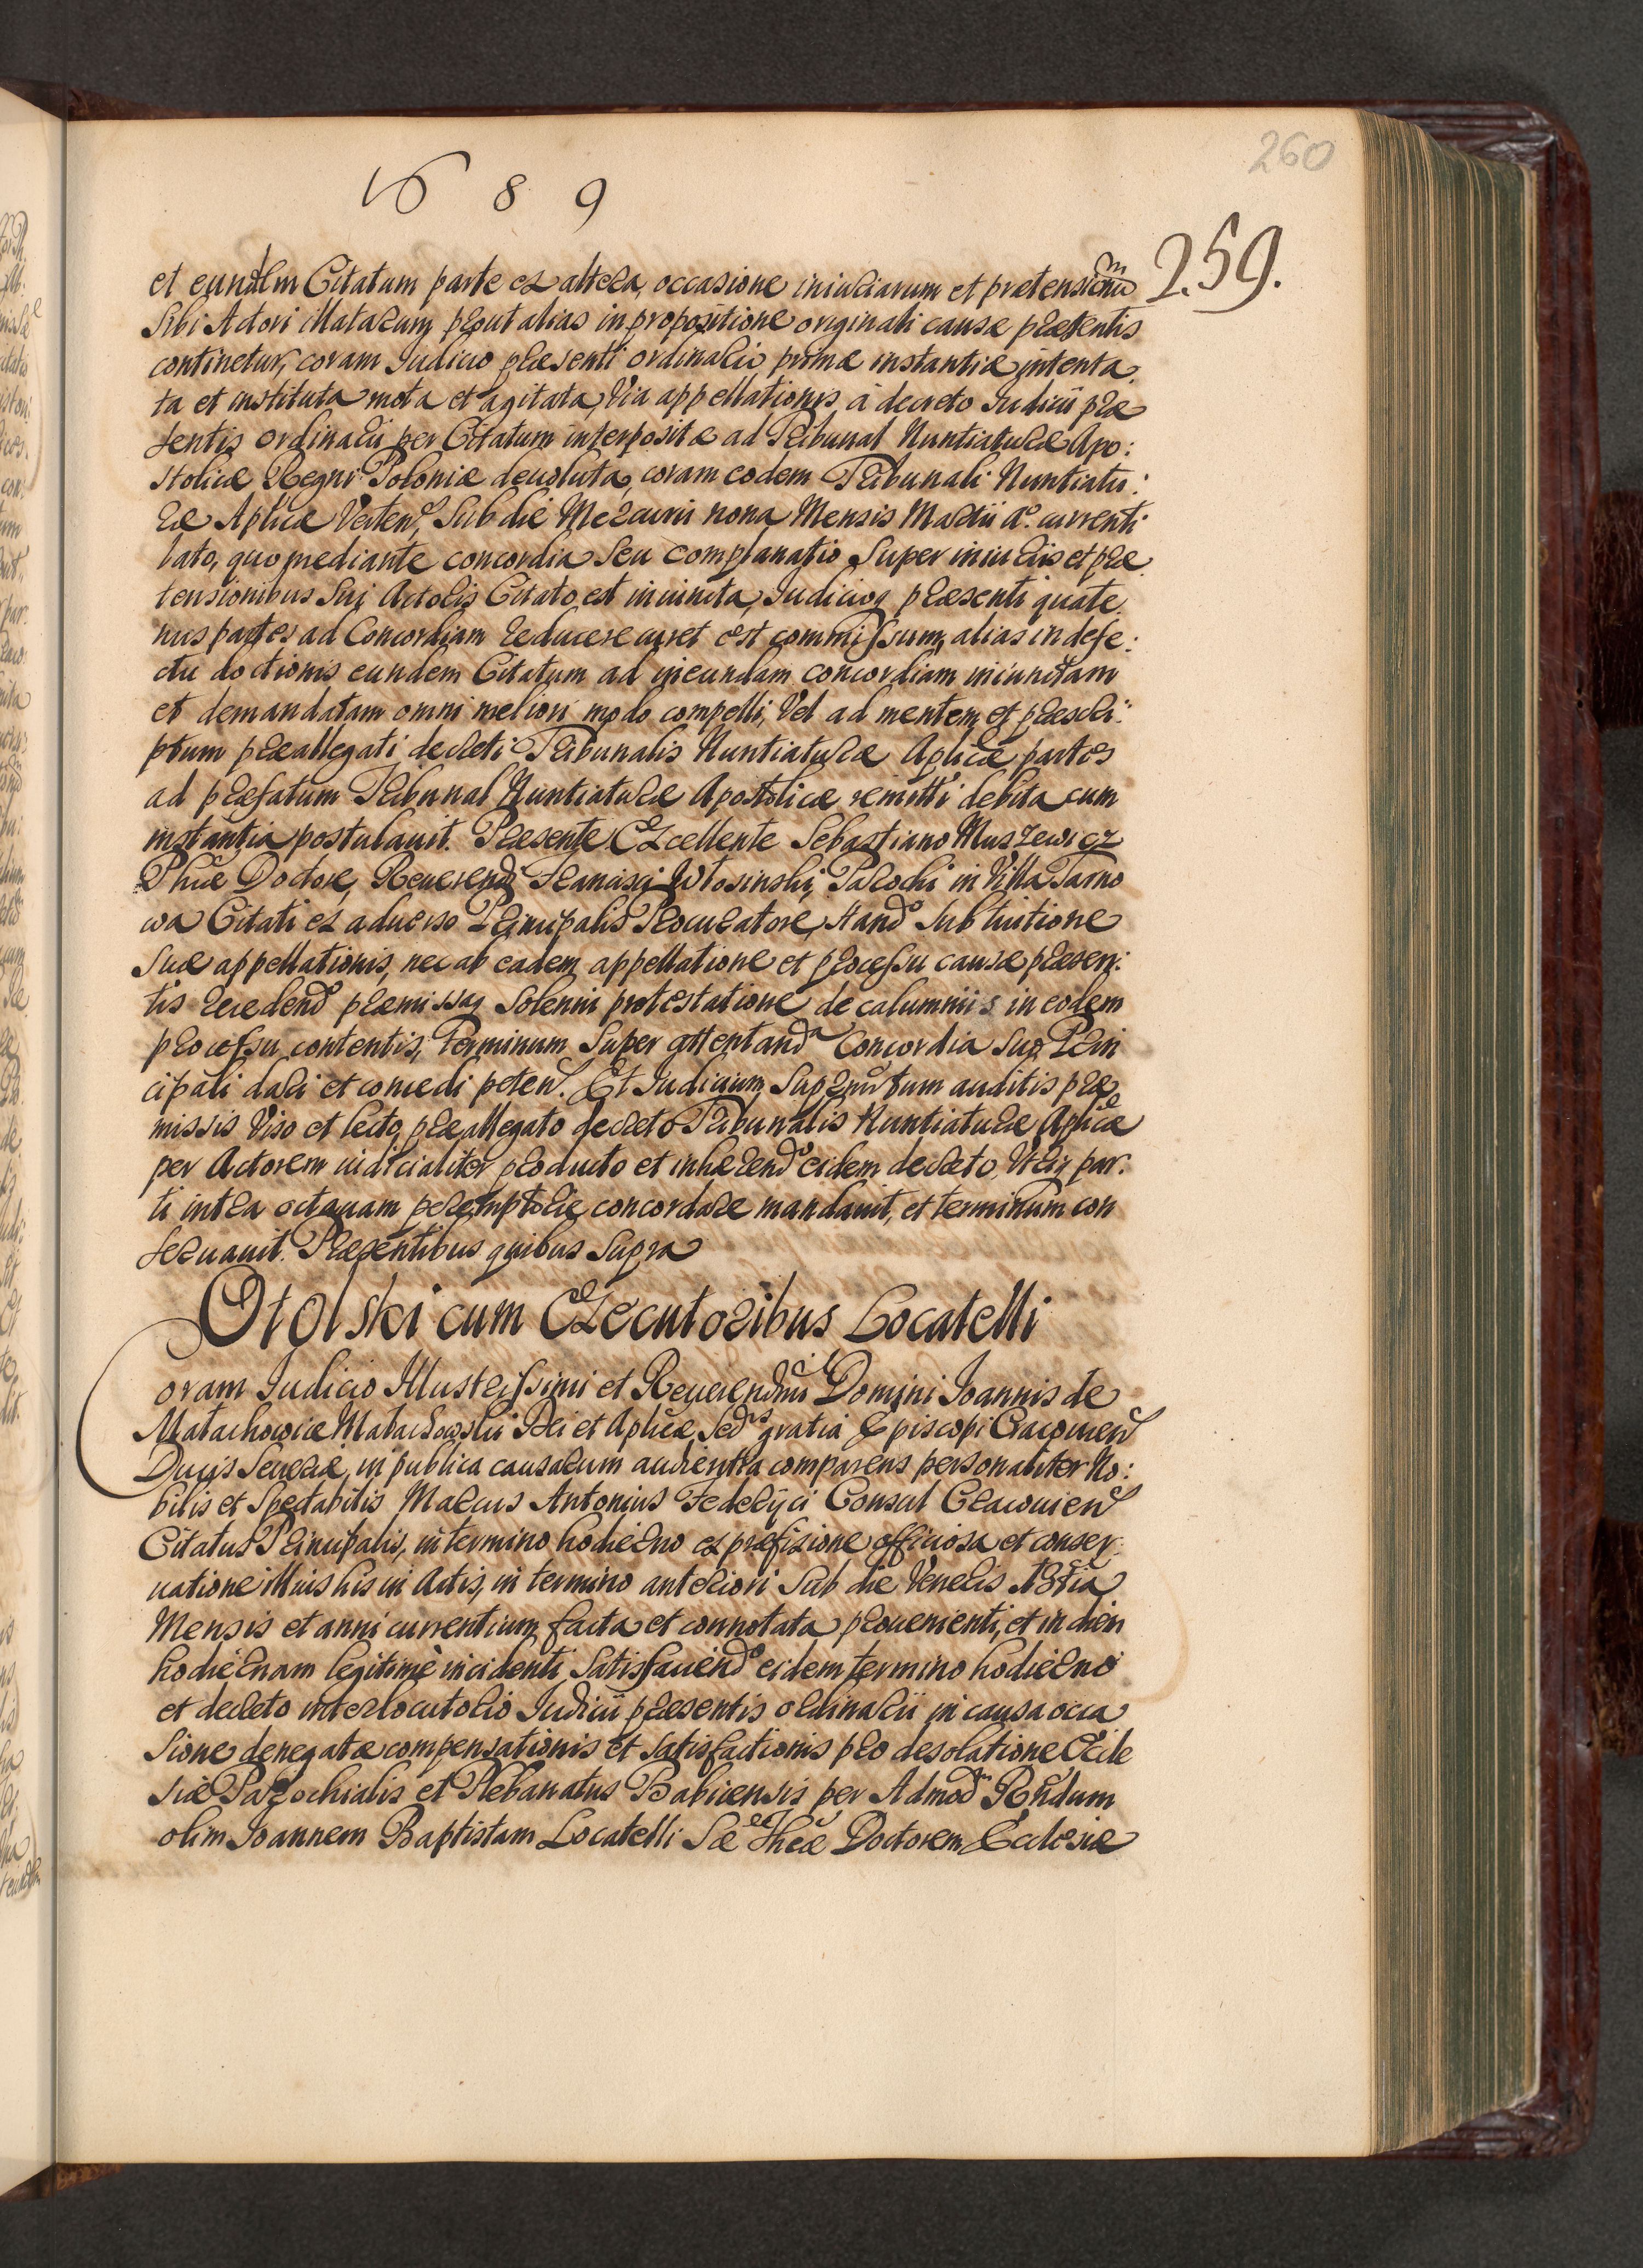 260
1689
259.
et eundem Citatum parte ex altera, occasione iniuriarum et prætensionũ
Sibi Actori illatarum prout alias in propositione originali causæ præsentis
continetur, coram Iudicio præsenti ordinario primæ instantiæ intenta
ta et instituta mota et agitata, Via appellationis à decreto Iudicii præ
sentis ordinarii per Citatum interpositæ ad Tribunal Nuntiaturæ Apo:
stolicæ Regni Poloniæ deuoluta, coram eodem Tribunali Nuntiatu:
ræ Aplicæ Verten, Sub die Mercurii nona Mensis Martii a°. currenti
lato, quo mediante concordia seu complanatio Super iniuriis et præ
tensionibus Sui Actoris Citato est iniuncta, Iudicioq præsenti quate
nus partes ad Concordiam reducere curet est commissum, alias in defe:
ctu doctionis eundem Citatum ad ineundam concordiam iniunctam
et demandatam omni meliori modo compelli, Vel ad mentem et præscri:
ptum præallegati decreti Tribunalis Nuntiaturæ Aplicæ partes
ad præfatum Tribunal Nuntiaturæ Apostolicæ remitti debita cum
instantia postulauit. Præsente Excellente Sebastiano Muszewicz
Phiæ Doctore, Reuerendi Francisci Włosinski, Parochi in Villa Tarno
wa Citati ex aduerso Principalis Procuratore, stand° Sub tuitione
Suæ appellationis, nec ab eadem appellatione et processu causæ præsen:
tis recedend° præmissaq Solenni protestatione de calumniis in eodem
processu contentis, Terminum Super attentanda Concordia Suo Prin
cipali dari et concedi peten. Et Iudicium Suprascriptum auditis præ
missis Viso et lecto præallegato decreto Tribunalis Nuntiaturæ Aplicæ
per Actorem iudicialiter producto et inhærend° eidem decreto, Utriq par:
ti intra octauam peremptorie concordare mandauit, et terminum con
seruauit. Præsentibus quibus Supra
Otolski cum Executoribus Locatelli
Coram Iudicio Illustrissimi et Reuerendmi Domini Ioannis de
Małachowice Małachowski Dei et Aplicæ Sedis gratia Episcopi Cracouien
Ducis Seueriæ, in publica causarum audientia comparens personaliter No:
bilis et Spectabilis Marcus Antonius Federyci Consul Cracouien
Citatus Principalis, in termino hodierno ex præfixione officiosa et conser
uatione illius his in Actis, in termino anteriori Sub die Veneris
Mensis et anni currentium facta et connotata prouenienti, et in diem
hodiernam legitimè incidenti, Satisfaciend° eidem termino hodierno
et decreto interlocutorio Iudicii præsentis ordinarii in causa occa
sione denegatæ compensationis et satisfactionis pro desolatione Eccle
siæ Parochialis et Plebanatus Babicensis per Admod Rndum
olim Ioannem Baptistam Locatelli Sæ Theæ Doctorem, Ecclesiæ